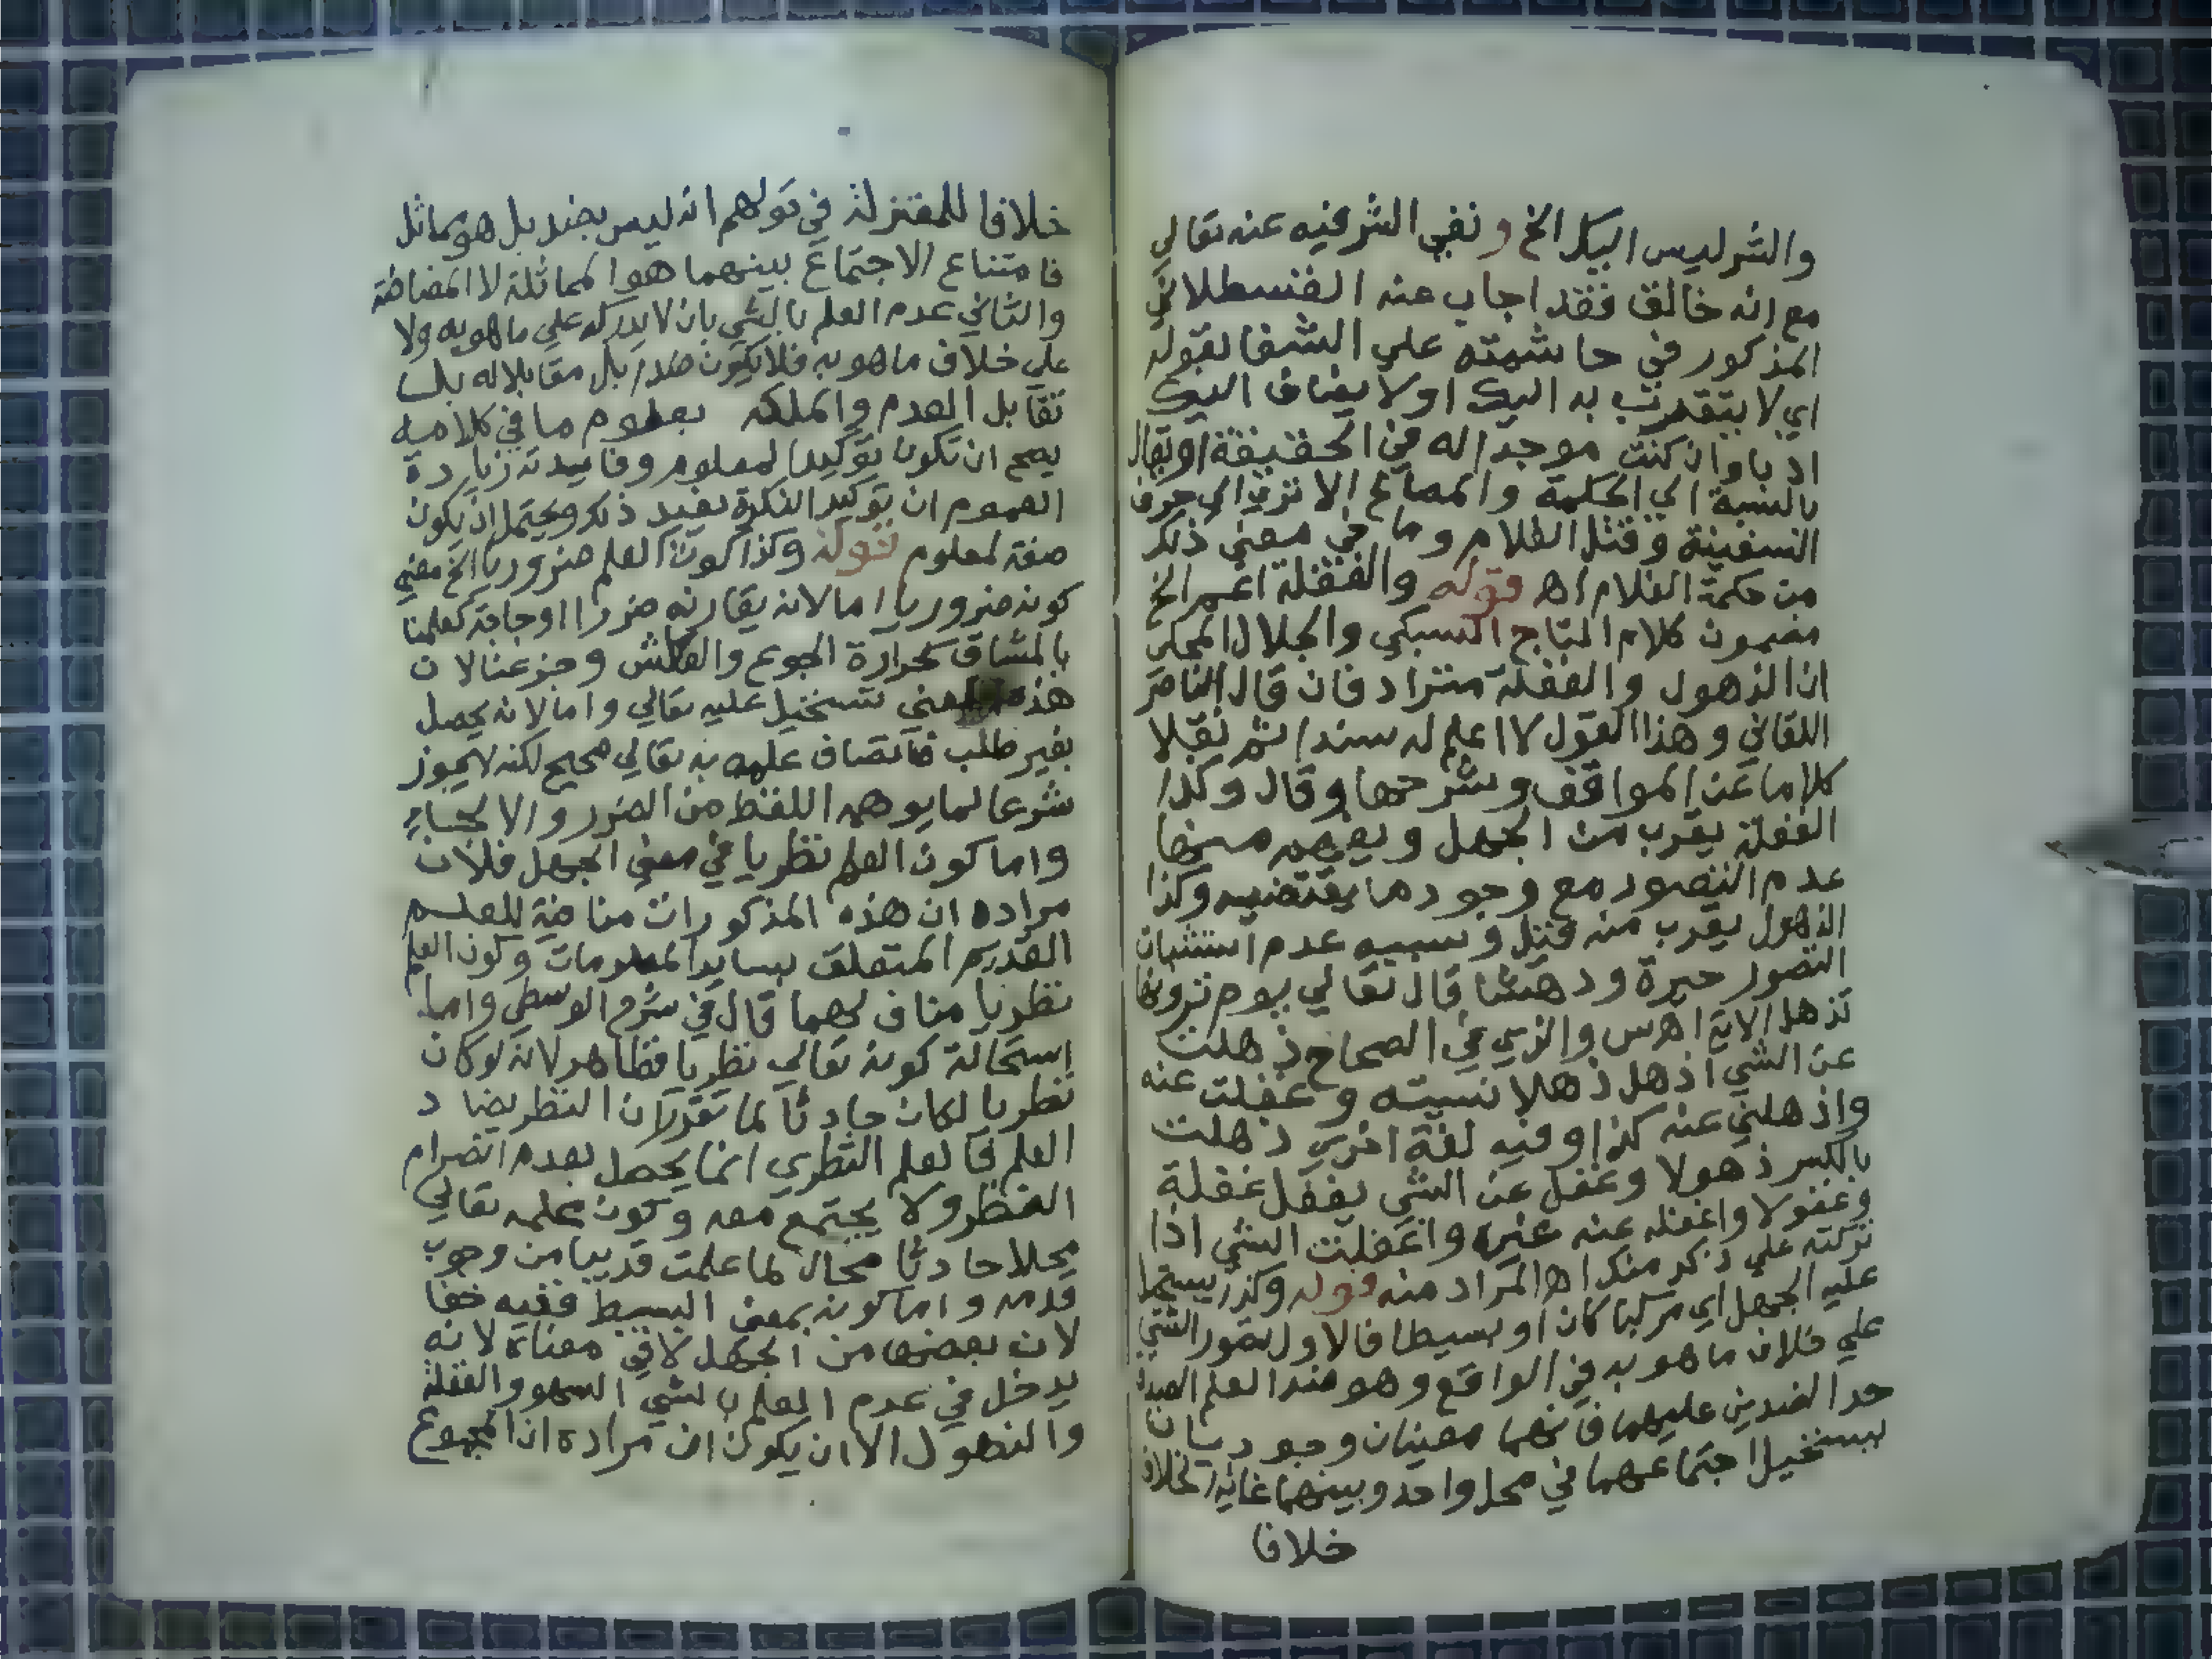 والشر ليس اليك الخ ونفي الشر فيه عنه تعالي
مع انه خالق فقد اجاب عنه القسطلاني
المذكور في حاشيته علي الشفا بقوله
اي لا يتقرب به اليك او لا يضاف اليك
ادبا وان كنت موجدا له في الحقيقة او يقال
بالنسبة الي الحكمة والمصالح الا تري الي خرق
السفينة وقتل الغلام وما في معني ذلك
من حكمة الغلام اه قوله والغفلة اعم الخ
مضمون كلام التاج السبكي والجلال المحلي
ان الذهول والغفلة مترادفان قال الناصر
اللقاني وهذا القول لا اعلم له سندا ثم نقلا
كلاما عن المواقف وشرحها وقال وكذا
الغفلة يقرب من الجهل ويفهم منها
عدم التصور مع وجود ما يقتضيه وكذا
الذهول يقرب منه قيل وسببه عدم استثبات
التصور حيرة ودهشا قال تعالي يوم ترونها
تذهل الاية اهس والذي في الصحاح ذهلت
عن الشي اذهل ذهلا نسيته وغفلت عنه
واذهلني عنه كذا وفيه لغة اخري ذهلت
بالكسر ذهولا وغفل عن الشي يغفل غفلة
وغفولا واغفله عنه غيره واغفلت الشي اذا
تركته علي ذكر منك اه المراد منه قوله وكذا يستحيل
عليه الجهل اي مركبا كان او بسيطا فالاول تصور الشي
علي خلاف ما هو به في الواقع وهو ضد العلم لصدق
حد الضدين عليهما فانهما معنيان وجوديان
يستحيل اجتماعهما في محل واحد وبينهما غاية الخلاف
خلافا
خلافا للمعتزلة في قولهم انه ليس بضد بل هو مماثل
فامتناع الاجتماع بينهما هو المماثلة لا المضادة
والثاني عدم العلم بالشي بان لا يدركه علي ما هو به ولا
علي خلاف ما هو به فلا يكون ضدا بل مقابلا له بل
تقابل العدم والملكه بعلوم ما في كلامه
يصح ان تكون توكيدا لمعلوم وفايدته زيادة
العموم ان توكيد النكرة يفيد ذلك ويحتمل ان يكون
صفة لمعلوم قوله وكذا كون العلم ضروريا الخ معني
كونه ضروريا اما لانه يقارنه ضررا او حاجة كعلمنا
بالمشاق كحرارة الجوع والعطش وجزعنا لان
هذه المعني تستحيل عليه تعالي واما لانه يحصل
بغير طلب فاتصاف علمه به تعالي صحيح لكنه لا يجوز
شرعا لما يوهمه اللفظ من الضرر والالجاء
واما كون العلم نظريا في معني الجهل فلان
مراده ان هذه المذكورات منافية للعلم
القديم المتعلق بساير المعلومات وكون العلم
نظريا مناف لهما قال في شرح الوسطي واما
استحالة كونه تعالي نظريا فظاهر لانه لو كان
نظريا لكان حادثا لما تقرر لان النظر يضاد
العلم فالعلم النظري انما يحصل بعدم انصرام
النظر ولا يجتمع معه وكون علمه تعالي
محلا حادثا محال لما علمت قريبا من وجوب
قدمه واما كونه بمعني البسيط ففيه خفا
لان بعضها من الجهل لا في معناه لانه
يدخل في عدم العلم بالشي السهو والغفلة
والذهول الا ان يكون ان مراده ان المجموع